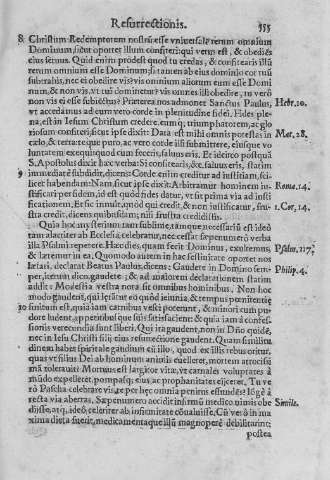 Resurrectionis. 555
8 Christum Redemptorem nostrum esse vniuersalem rerum omnium
Dominum, sicut oportet illum confiteri: qui verus est, & obediés
eius seruus. Quid enim prodest quod tu credas, & confitearis illũ
rerum omnium esse Dominum; si tamen ab eius dominio cor tuũ
subtrahis, nec ei obedire vis? si omnium aliorum eum esse Domi
num, & non vis vt tui dominetur? vis omnes illi obedire, tu verò
non vis ei esse subiectus? Præterea nos admonet Sanctus Paulus, Hebr. 10.
vt accedamus ad eum vero corde in plenitudine fidei. Fides ple
na, est in Iesum Christum credere, eumq; triumphatorem, ac glo
riosum confiteri, sicut ipse dixit: Data est mihi omnis potestas in Mat. 28.
cælo, & terra: eque puro, ac vero corde illi submittere, eiusque vo
luntatem exequi quod cum feceris, saluus eris. Et ideirco postquã
S. Apostolus dixit hæc verba: Si confitearis, &c. saluus eris, statim
9 immediatè subdidit, dicens: Corde enim creditur ad iustitiam, sci-
licet habendam: Nam, sicut ipse dixit: Arbitramur hominem iu- Roma. 14.
stificari per fidem, id est quòd fides datur, vt sit prima via ad iusti
ficationem, Et sic inuitè, quod qui credit, & non iustificatur, fru- 1. Cor. 14.
stra credit, dicens quibusdam; nisi frustra credidistis.
Quia hoc mysterium tam sublime, tamque necessariũ est ideò
tam alacriter ab Ecclesia celebratur, nec cessat sæpenumerò verba
illa Psalmi repetere. Hæc dies, quam fecit Dominus, exultemus, Psalm. 117.
& lætemur in ea. Quomodo autem in hac festiuitate oportet nos
lætari, declarat Beatus Paulus, dicens: Gaudete in Domino sem- Philip. 4.
per, iterum dico, gaudete; & ad maiorem declarationem statim
addit: Modestia vestra nota sit omnibus hominibus. Non hoc
modo gaudent, qui lętãtur eo quòd ieiunia, & tempus pœnitentię
10 finitum est, quia iam carnibus vesci poterunt, & minori cum pu-
dore ludent, appetitibus que suis satisfacient: & quia iam à confes-
sionis verecundia sunt liberi. Qui ita gaudent, non in Dño quidē,
nec in Iesu Christi filij eius resurrectione gaudent. Quam simili tu
dinem habet spirituale gaudium cũ illo, quod ex illis rebus oritur,
quas vt filius Dei ab hominum animis euelleret, mortem atrocissi
mã tolerauit? Mortuus est largitor vitæ, vt carnales voluptates à
mũdo expelleret, pompasq; eius ac prophanitates eijceret. Tu ve
rò Pascha celebrare vis, te per hęc omnia penitus effundēs? lõgè à
recta via aberras. Sæpenumero accidit infirmũ medico nimis obe Simile.
disse, atq; ideò celeriter ab infirmitate cõualuisse. Cũ verò in ma
xima dieta fuerit, medicamentaque illũ magnoperè debilitarint;
postea